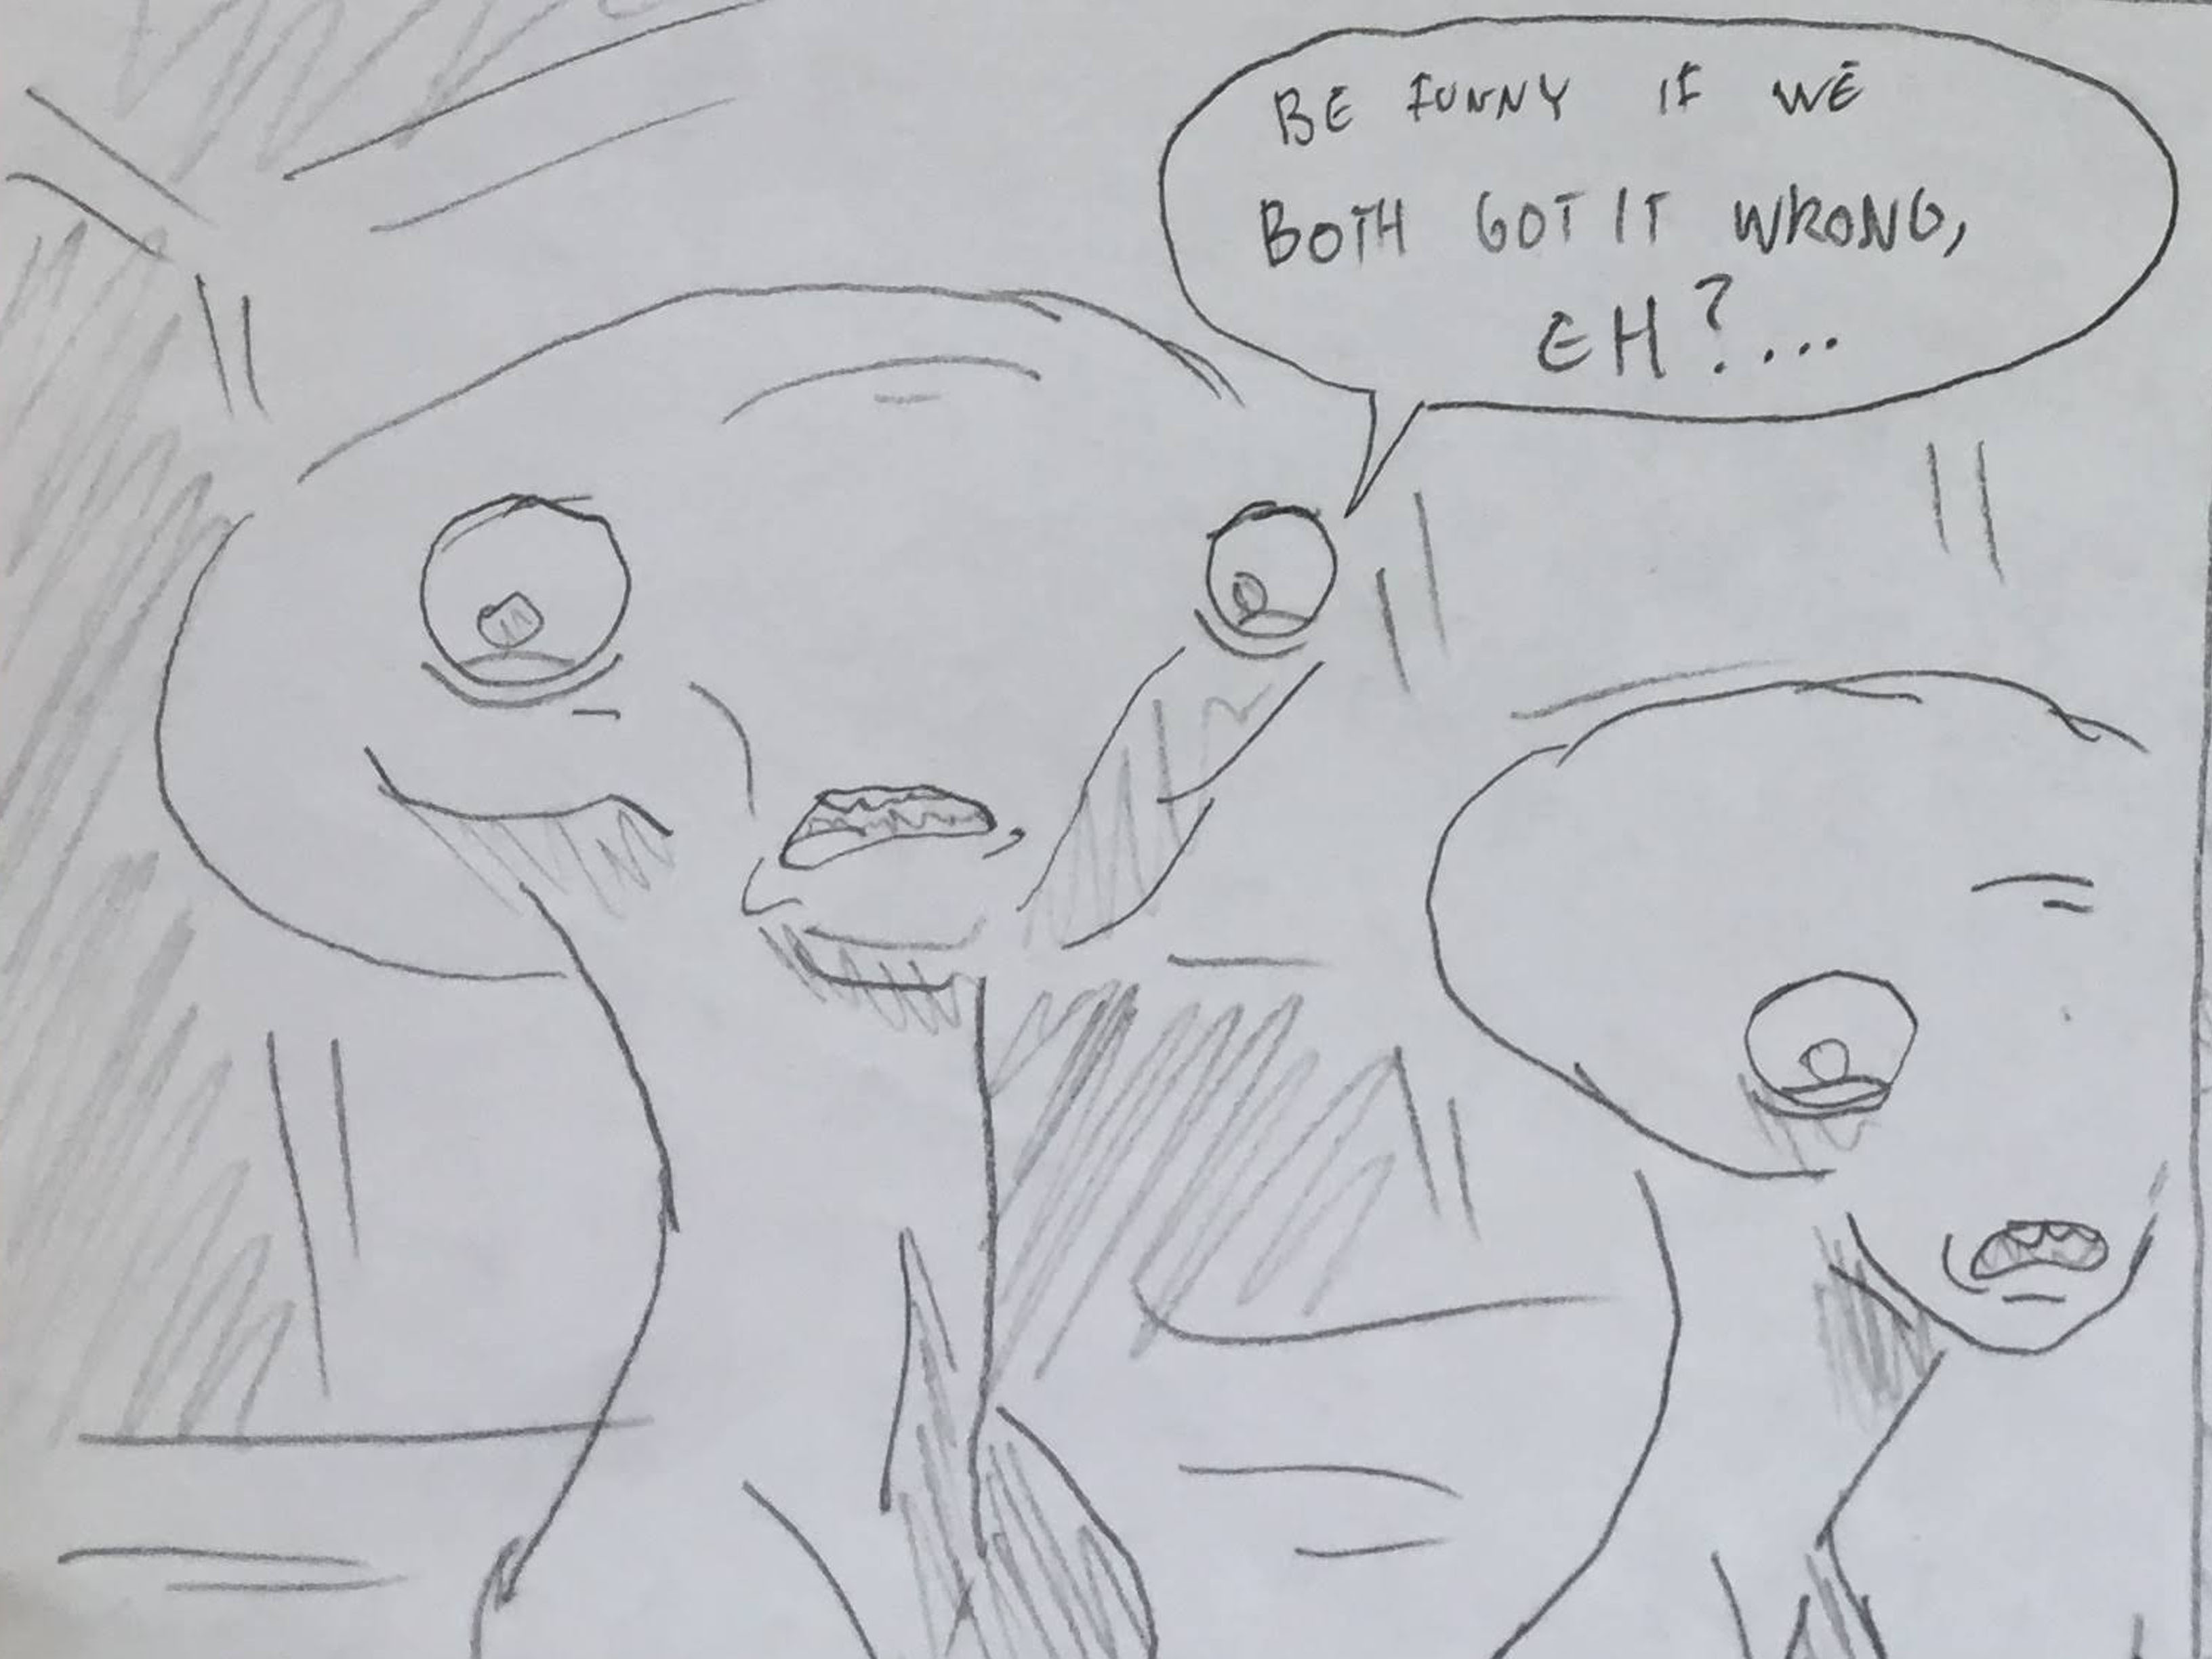 BE FUNNY IF WE
BOTH GOT IT WRONG,
EH?...